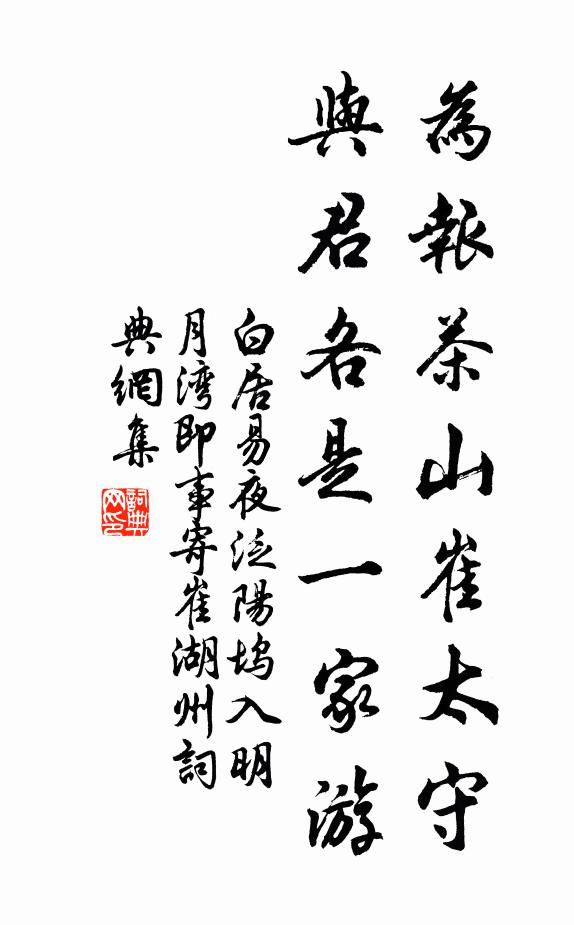 為報茶山崔太守
與君各是一家游
白居易夜泛陽塢入明
月湾即事寄崔湖州詞
典網集
詞典
网印